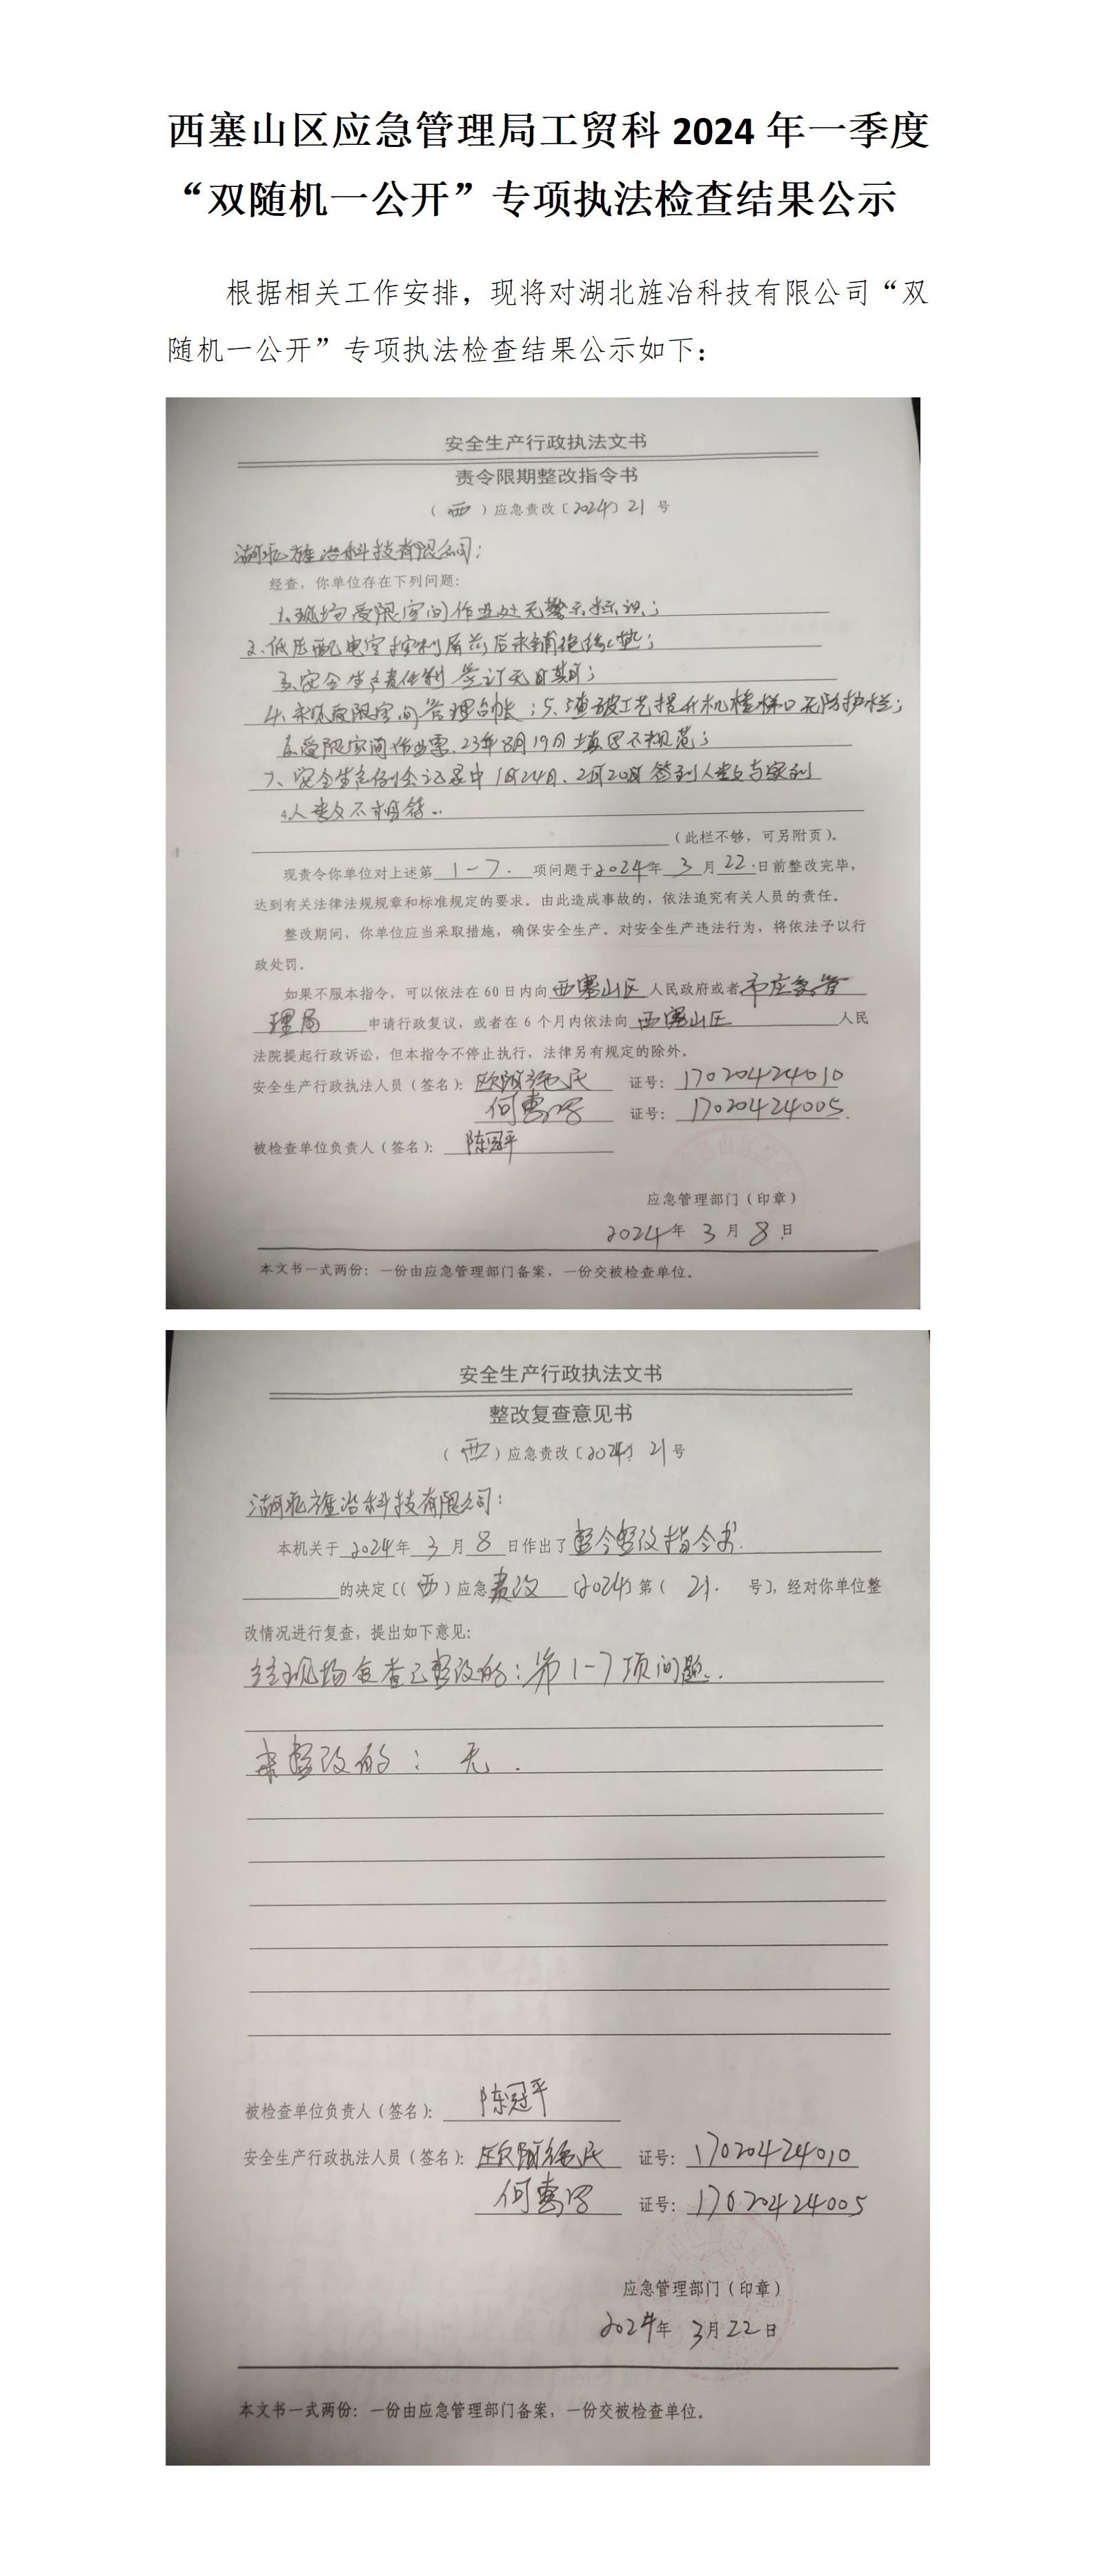 西塞山区应急管理局工贸科 2024 年一季度
“双随机一公开”专项执法检查结果公示
根据相关工作安排，现将对湖北旌冶科技有限公司“双
随机一公开”专项执法检查结果公示如下：
安全生产行政执法文书
责令限期整改指令书
（西）应急责改〔2024〕21 号
湖北旌冶科技有限公司：
经查，你单位存在下列问题：
1、现场受限空间作业处无警示标识；
2、低压配电室控制屏前后未铺绝缘垫；
3、安全生产责任制签订无日期；
4、未见受限空间管理台帐；5、渣破工艺提升机楼梯口无防护栏；
6、受限空间作业票、23年8月19日填写不规范；
7、安全生产例会记录中1月24日、2月20日签到人数与实到
人数不相符。
（此栏不够，可另附页）。
现责令你单位对上述第 1-7 项问题于 2024 年 3 月 22 日前整改完毕，
达到有关法律法规规章和标准规定的要求。由此造成事故的，依法追究有关人员的责任。
整改期间，你单位应当采取措施，确保安全生产。对安全生产违法行为，将依法予以行
政处罚。
如果不服本指令，可以依法在 60 日内向 西塞山区 人民政府或者 市应急管
理局 申请行政复议，或者在 6 个月内依法向 西塞山区 人民
法院提起行政诉讼，但本指令不停止执行，法律另有规定的除外。
安全生产行政执法人员（签名）： 欧阳 民 证号： 17020424010
何惠 证号： 17020424005
被检查单位负责人（签名）： 陈冠平
应急管理部门（印章）
2024 年 3 月 8 日
本文书一式两份：一份由应急管理部门备案，一份交被检查单位。
安全生产行政执法文书
整改复查意见书
（西）应急责改〔2024〕21 号
湖北旌冶科技有限公司：
本机关于 2024 年 3 月 8 日作出了 整令整改指令书
的决定〔（西）应急 责改 〔2024〕第（ 21 号〕，经对你单位整
改情况进行复查，提出如下意见：
经现场复查已整改的：第1-7项问题。
未整改的：无.
被检查单位负责人（签名）： 陈冠平
安全生产行政执法人员（签名）： 欧阳 民 证号： 17020424010
何惠 证号： 17020424005
应急管理部门（印章）
2024 年 3 月 22 日
本文书一式两份：一份由应急管理部门备案，一份交被检查单位。